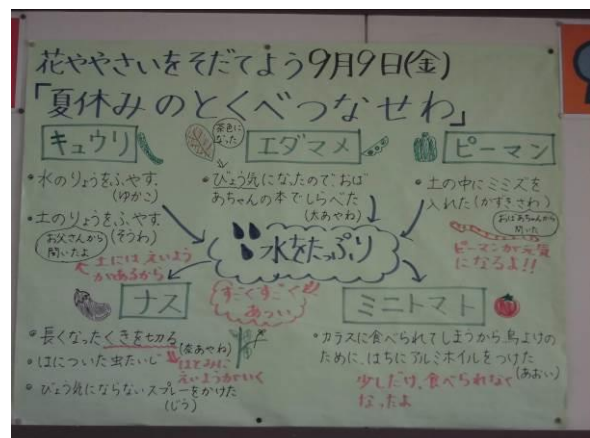 花ややさいをそだてよう9月9日(金)
「夏休みのとくべつなせわ」
キュウリ
・水のりょうをふやす。
(ゆかこ)
・土のりょうをふやす。
(そうわ)
お父さんから
聞いたよ
土にはえいよう
があるから
茶色に
なった
エダマメ
・びょう気になったので、おば
あちゃんの本でしらべた
(太あやね)
ピーマン
・土の中にミミズを
入れた(かずきさわ)
おばあちゃんから
聞いた
ピーマンが元気
になるよ!!
水をたっぷり
すごくすごく
あつい
ナス
・長くなったくきを切る
はとみに
えいようがいく
・はについた虫たいじ
・びょう気にならないスプレーをかけた
(じう)
ミニトマト
・カラスに食べられてしまうから鳥よけの
ために、はちにアルミホイルをつけた
(あおい)
少しだけ、食べられなく
なったよ